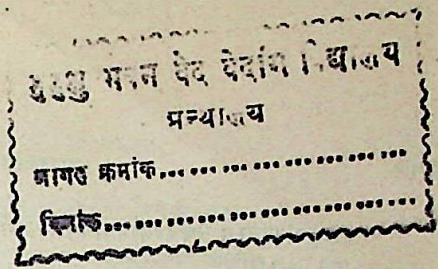 मुमुक्षु भवन वेद वेदांग विद्यालय
ग्रन्थालय
आगत क्रमांक......................................
दिनांक............................................